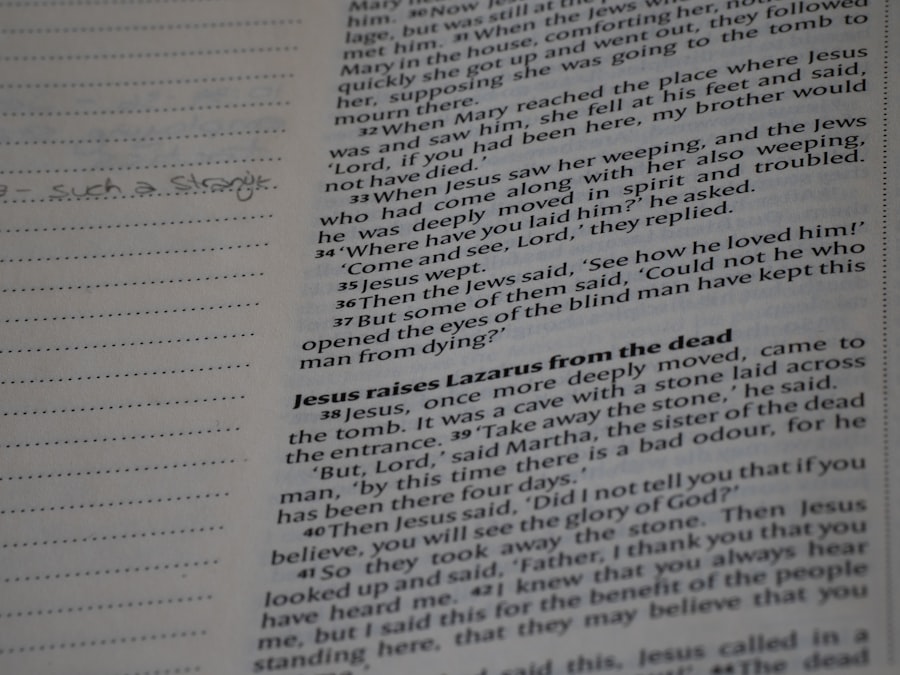 him. 30 Now Jes
lage, but was still at the
met him. 31 When the Jews who
Mary in the house, comforting her,
quickly she got up and went out, they followed
her, supposing she was going to the tomb to
mourn there.
32 When Mary reached the place where Jesus
was and saw him, she fell at his feet and said,
‘Lord, if you had been here, my brother would
not have died.’
33 When Jesus saw her weeping, and the Jews
who had come along with her also weeping,
he was deeply moved in spirit and troubled.
34 ‘Where have you laid him?’ he asked.
‘Come and see, Lord,’ they replied.
35 Jesus wept.
36 Then the Jews said, ‘See how he loved him!’
37 But some of them said, ‘Could not he who
opened the eyes of the blind man have kept this
man from dying?’
Jesus raises Lazarus from the dead
38 Jesus, once more deeply moved, came to
the tomb. It was a cave with a stone laid across
the entrance. 39 ‘Take away the stone,’ he said.
‘But, Lord,’ said Martha, the sister of the dead
man, ‘by this time there is a bad odour, for he
has been there four days.’
40 Then Jesus said, ‘Did I not tell you that if you
believe, you will see the glory of God?’
41 So they took away the stone. Then Jesus
looked up and said, ‘Father, I thank you that you
have heard me. 42 I knew that you always hear
me, but I said this for the benefit of the people
standing here, that they may believe that you
said this, Jesus called in a
44 The dead
- such a strange